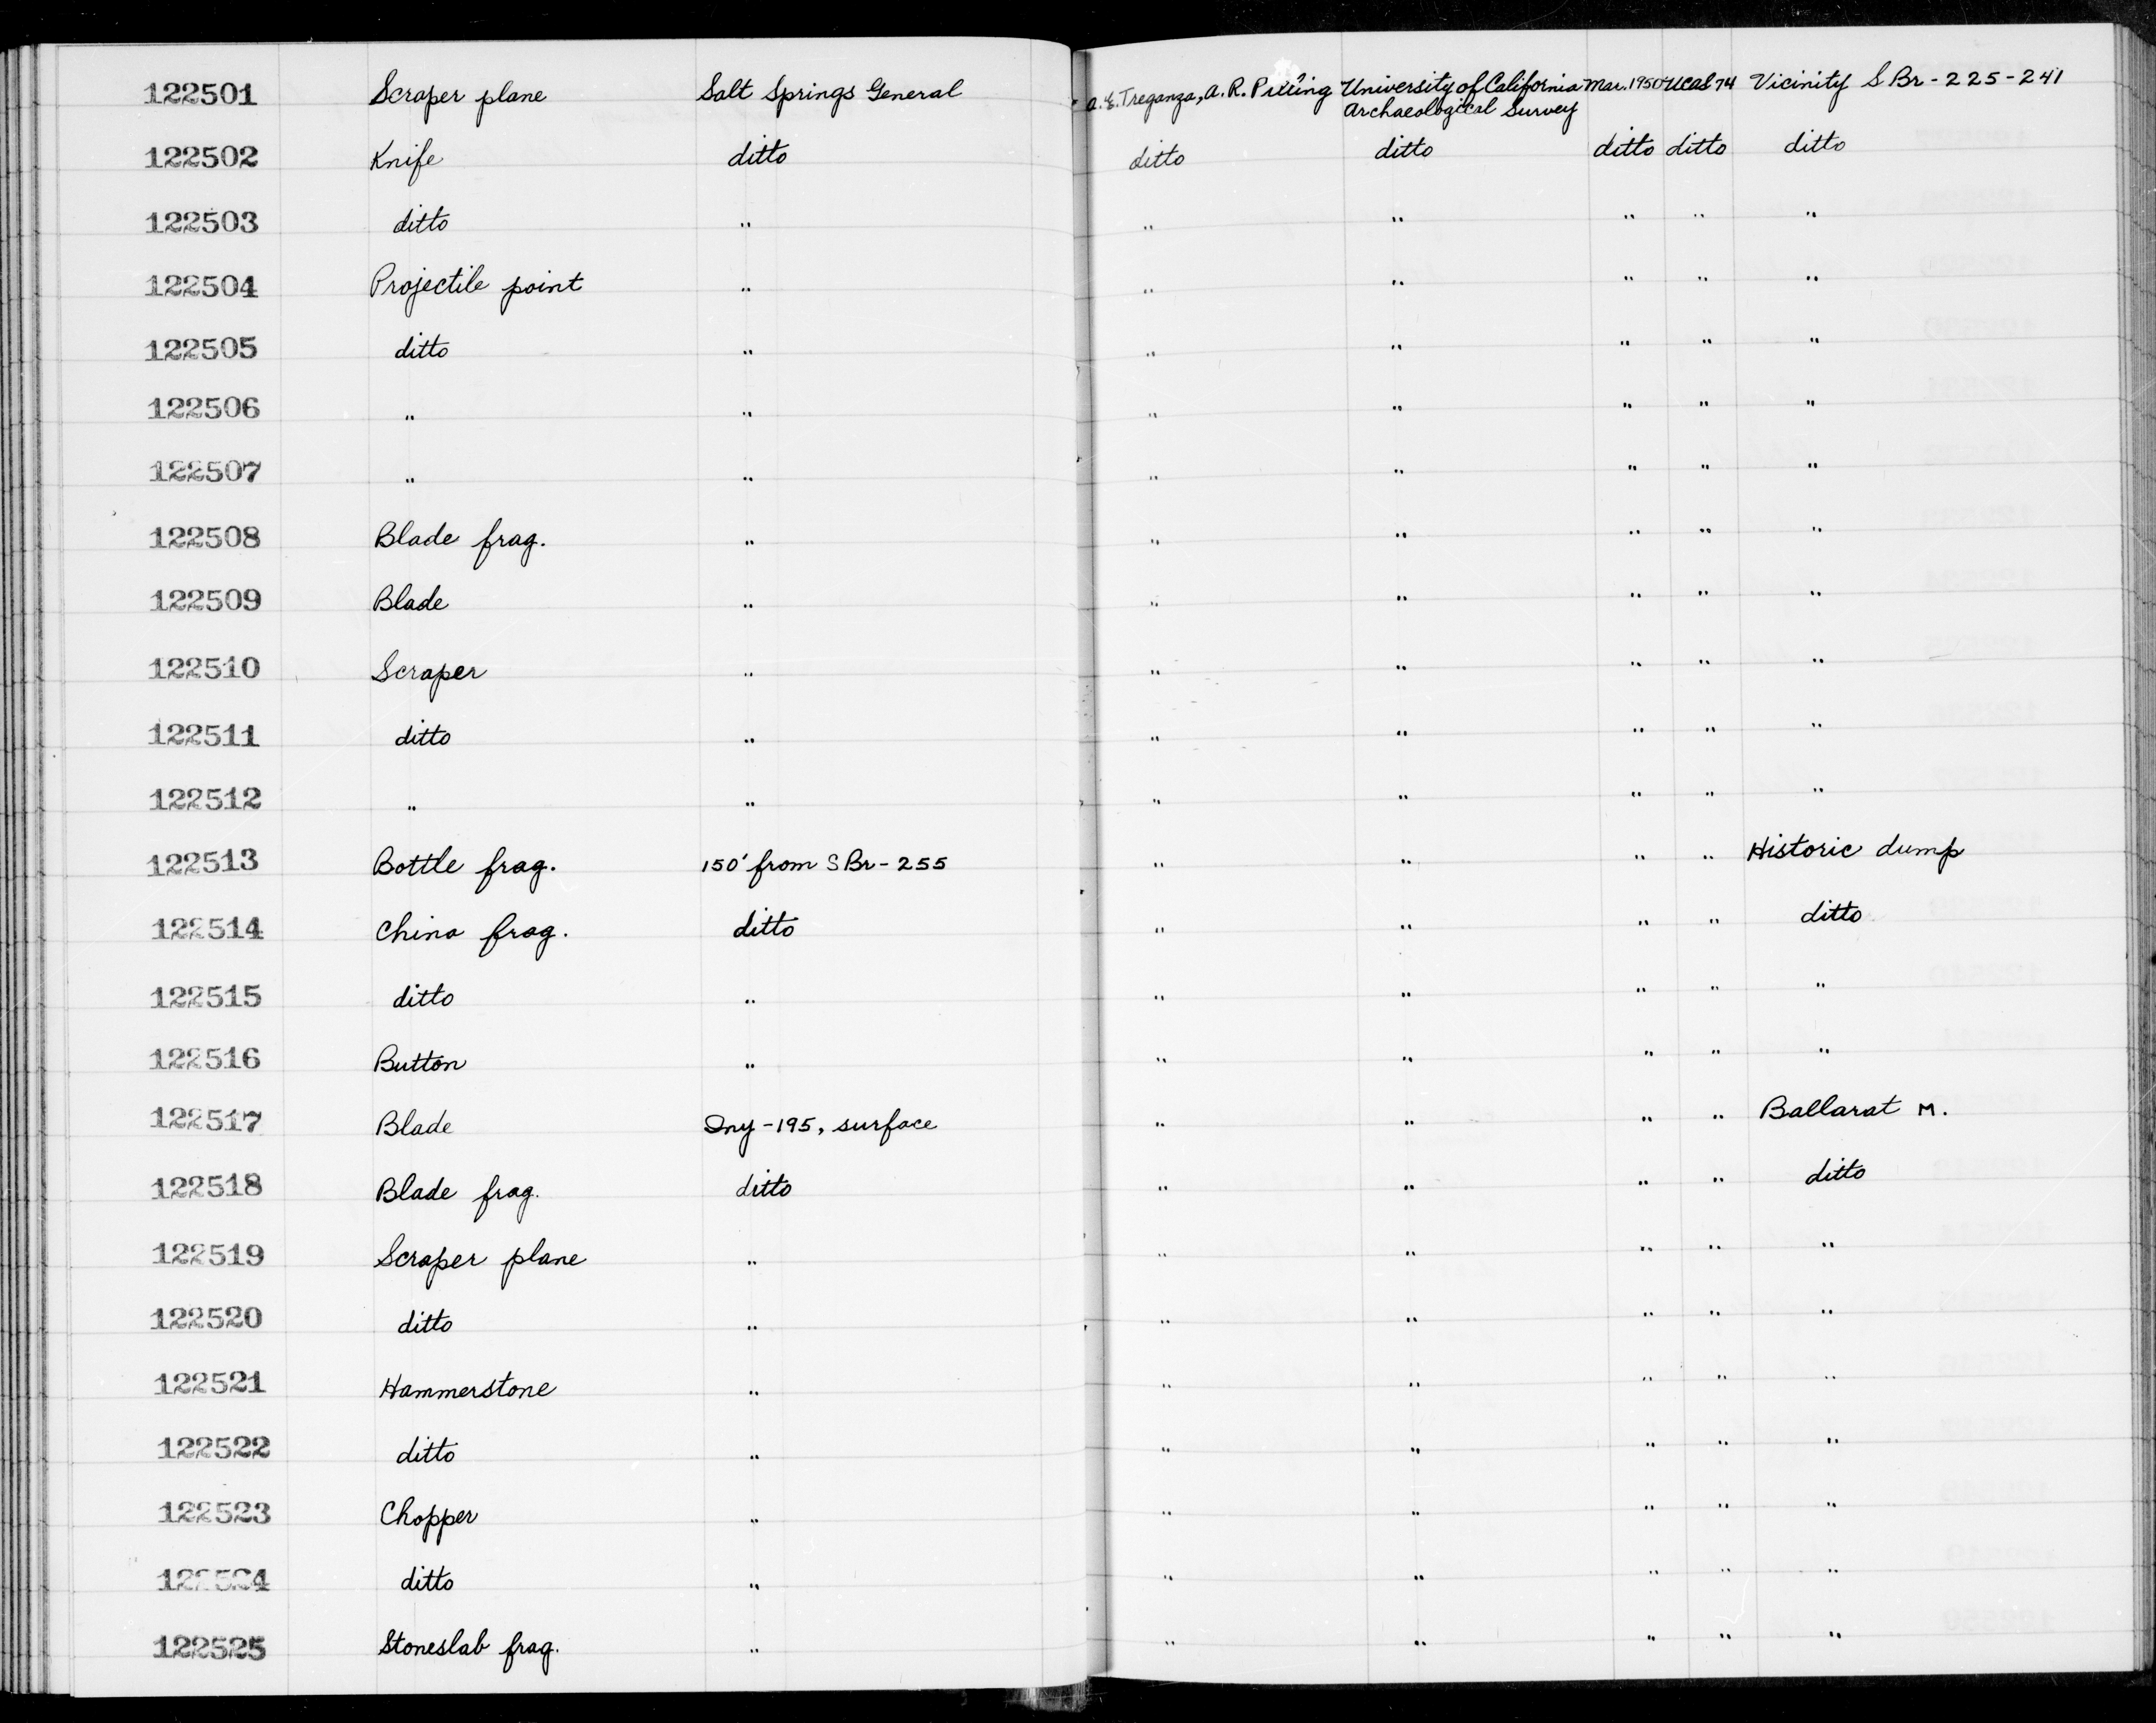 122501 Scraper plane Salt Springs General A. E. Treganza, A. R. Pilling University of California Mar. 1950 UCAS 74 Vicinity SBr-225-241
Archaeological Survey
122502 Knife ditto ditto ditto ditto ditto ditto
122503 ditto " " " " " "
122504 Projectile point " " " " " "
122505 ditto " " " " " "
122506 " " " " " " "
122507 " " " " " " "
122508 Blade frag. " " " " " "
122509 Blade " " " " " "
122510 Scraper " " " " " "
122511 ditto " " " " " "
122512 " " " " " " "
122513 Bottle frag. 150' from SBr-255 " " " " Historic dump
122514 China frag. ditto " " " " ditto
122515 ditto " " " " " "
122516 Button " " " " " "
122517 Blade Iny-195, surface " " " " Ballarat M.
122518 Blade frag. ditto " " " " ditto
122519 Scraper plane " " " " " "
122520 ditto " " " " " "
122521 Hammerstone " " " " " "
122522 ditto " " " " " "
122523 Chopper " " " " " "
122524 ditto " " " " " "
122525 Stoneslab frag. " " " " " "